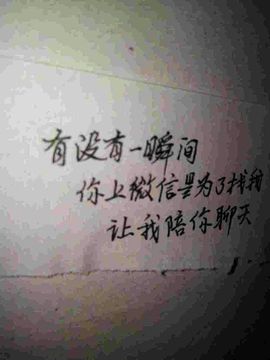 有没有一瞬间
你上微信是为了找我
让我陪你聊天